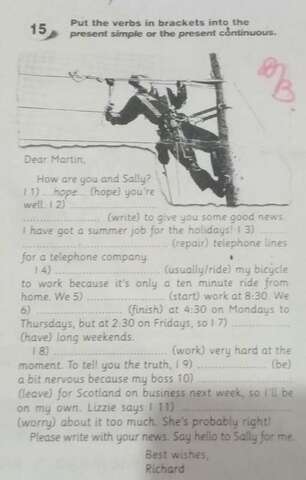 15 Put the verbs in brackets into the
present simple or the present continuous.
Dear Martin,
How are you and Sally?
I 1) ... hope ... (hope) you're
well. I 2) ..............................
.............................. (write) to give you some good news.
I have got a summer job for the holidays! I 3) ..............
.............................. (repair) telephone lines
for a telephone company.
I 4) .............................. (usually/ride) my bicycle
to work because it's only a ten minute ride from
home. We 5) .............................. (start) work at 8:30. We
6) .............................. (finish) at 4:30 on Mondays to
Thursdays, but at 2:30 on Fridays, so I 7) ..............
(have) long weekends.
I 8) .............................. (work) very hard at the
moment. To tell you the truth, I 9) .............................. (be)
a bit nervous because my boss 10) ..............................
(leave) for Scotland on business next week, so I'll be
on my own. Lizzie says I 11) ..............................
(worry) about it too much. She's probably right!
Please write with your news. Say hello to Sally for me.
Best wishes,
Richard